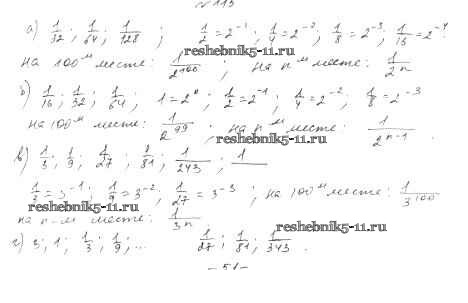 N 113
а) 1/32 ; 1/64 ; 1/128 ; 1/2 = 2⁻¹ ; 1/4 = 2⁻² ; 1/8 = 2⁻³ ; 1/16 = 2⁻⁴
reshebnik5-11.ru
на 100м месте: 1/2¹⁰⁰ ; на nм месте: 1/2ⁿ
б) 1/16 ; 1/32 ; 1/64 ; 1 = 2⁰ ; 1/2 = 2⁻¹ ; 1/4 = 2⁻² ; 1/8 = 2⁻³
на 100м месте: 1/2⁹⁹ ; на nм месте: 1/2ⁿ⁻¹ .
reshebnik5-11.ru
в) 1/3 ; 1/9 ; 1/27 ; 1/81 ; 1/243 ; 1/
1/3 = 3⁻¹ ; 1/9 = 3⁻² ; 1/27 = 3⁻³ ; на 100м месте: 1/3¹⁰⁰
reshebnik5-11.ru
на n-м месте: 1/3ⁿ
reshebnik5-11.ru
г) 3 ; 1 ; 1/3 ; 1/9 ; ... 1/27 ; 1/81 ; 1/343 .
- 51 -